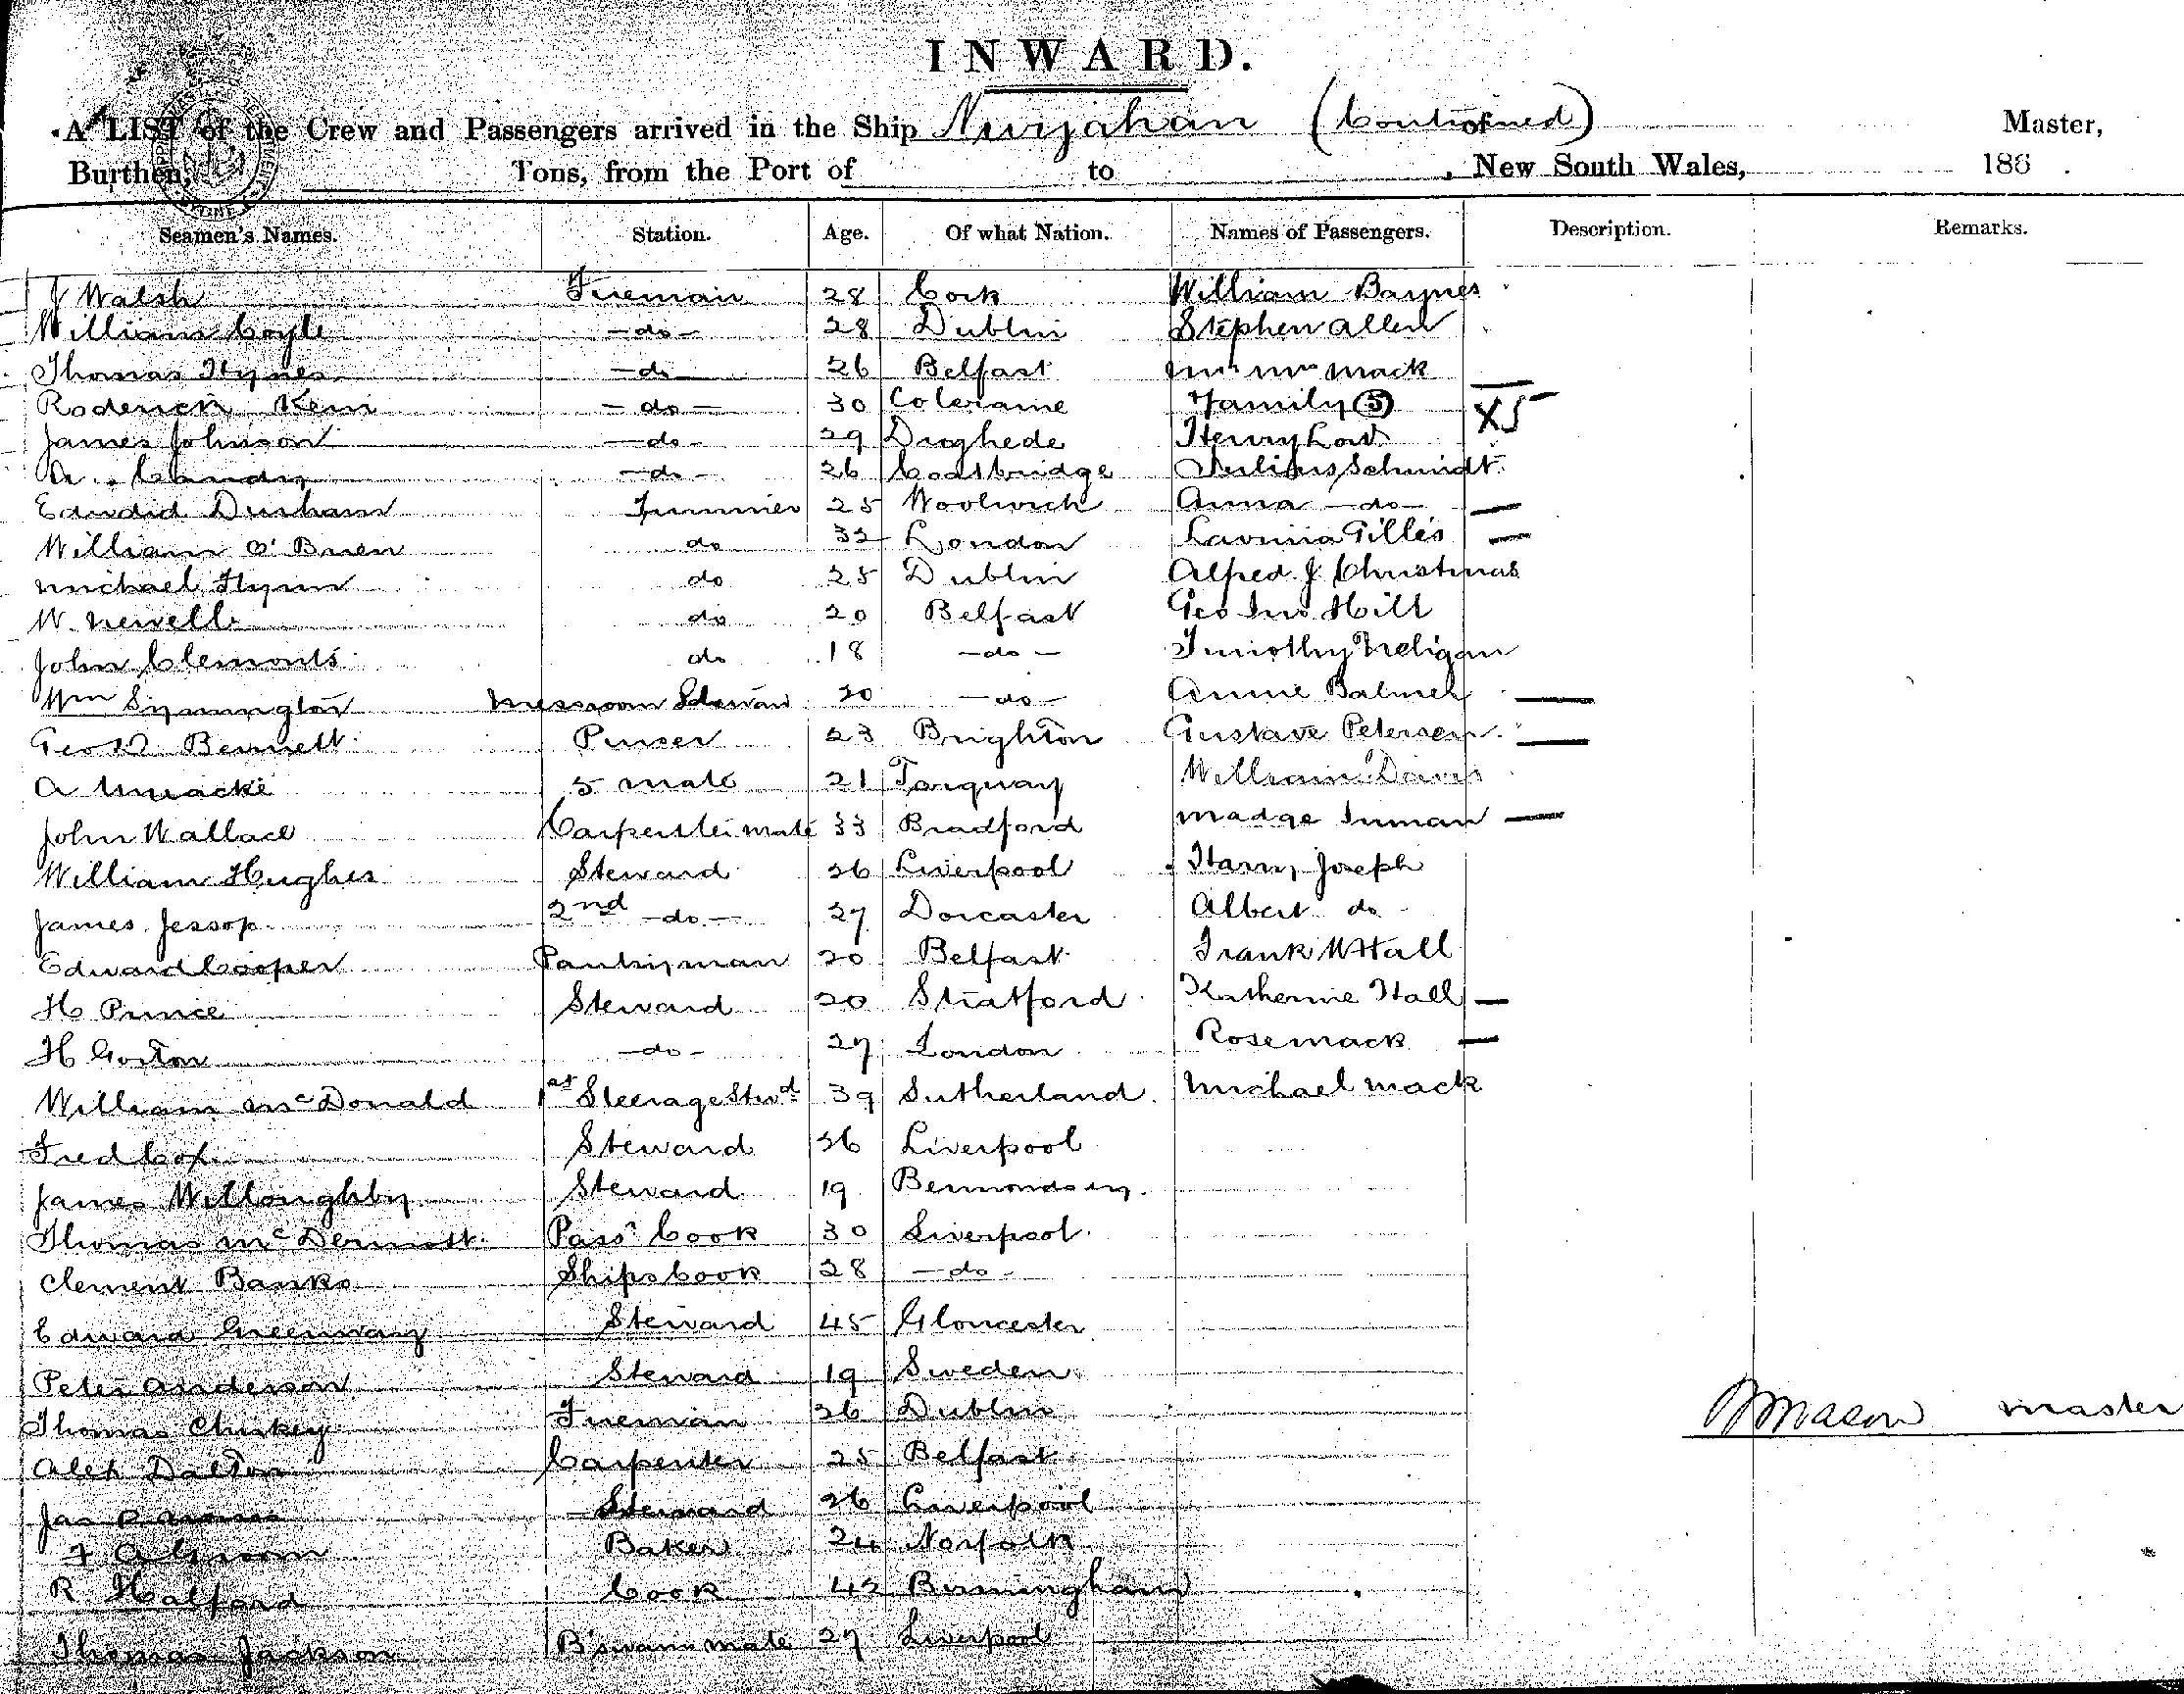 INWARD.
A LIST of the Crew and Passengers arrived in the Ship Nurjahan (Continued) of Master,
Burthen, Tons, from the Port of to , New South Wales, 186 .
Seamen's Names. Station. Age. Of what Nation. Names of Passengers. Description. Remarks.
J Walsh Fireman 28 Cork William Baynes
William Coyle -do- 28 Dublin Stephen Allen
Thomas Hynes -do- 26 Belfast Mack
Roderick Keni -do- 30 Coleraine Family (5) X5
James Johnson -do- 29 Droghede Henry Low
A. -do- 26 Coatbridge Julius Schmidt
Durham Trimmer 25 Woolwich Anna -do- —
William O'Brien do 32 London Lavinia Gilles —
Michael Flynn do 25 Dublin Alfred J Christmas
W. Newell do 20 Belfast Geo Jno Hill
John Clemonts do 18 -do- Timothy Neligan
Wm Symington Messroom Steward 20 -do- Annie Balmer —
Geo W. Bennett Purser 23 Brighton Gustave Petersen —
A 5 mate 21 Torquay William Davis
John Wallace Carpenter mate 33 Bradford Madge Inman —
William Hughes Steward 26 Liverpool Harry Joseph
James Jessop 2nd -do- 27 Dorcaster Albert do
Edward Cooper Pantryman 20 Belfast Frank W Hall
H Prince Steward 20 Stratford Katherine Hall —
H Gorton -do- 27 London Rose Mack —
William McDonald 1st Steerage Stwd 39 Sutherland Michael Mack
Fred Cox Steward 26 Liverpool
James Willoughby Steward 19 Bermondsey
Thomas McDermott Passr Cook 30 Liverpool
Clement Banks Ships Cook 28 -do-
Edward Greenway Steward 45 Gloucester
Peter Anderson Steward 19 Sweden
Thomas Fireman 26 Dublin
Mason master
Alex Dalton Carpenter 25 Belfast
Jas Steward 26 Liverpool
F A Groom Baker 24 Norfolk
R Halford Cook 42 Birmingham
Thomas Jackson B'swains mate 27 Liverpool